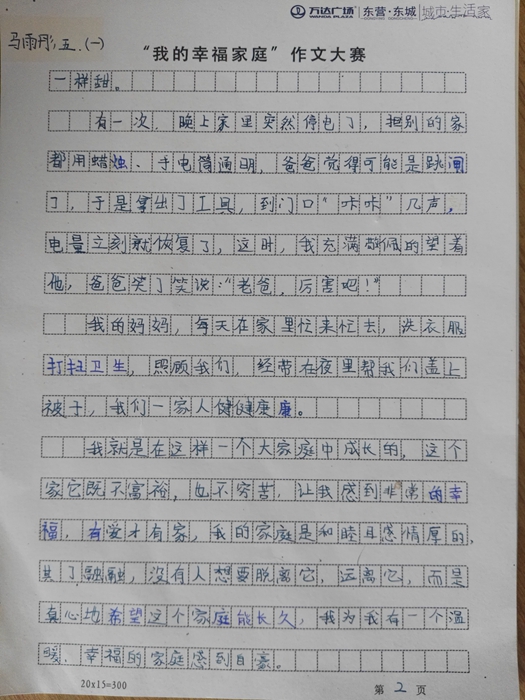 万达广场 WANDA PLAZA 东营·东城 城市·生活家
马雨彤,五.(一)
“我的幸福家庭”作文大赛
一样甜。
有一次,晚上家里突然停电了,担别的家
都用蜡烛、手电筒通明,爸爸觉得可能是跳闸
了,于是拿出了工具,到门口“咔咔”几声,
电量立刻就恢复了,这时,我充满敬佩的望着
他,爸爸笑了笑说:“老爸,厉害吧!”
我的妈妈,每天在家里忙来忙去,洗衣服
打扫卫生,照顾我们,经带在夜里帮我们盖上
被子,我们一家人健健康康。
我就是在这样一个大家庭中成长的,这个
家它既不富裕,也不穷苦,让我感到非常的幸
福,有爱才有家,我的家庭是和睦且感情厚的,
其了融融,没有人想要脱离它,远离它,而是
真心地希望这个家庭能长久,我为我有一个温
暖、幸福的家庭感到自豪。
20×15=300
第 2 页